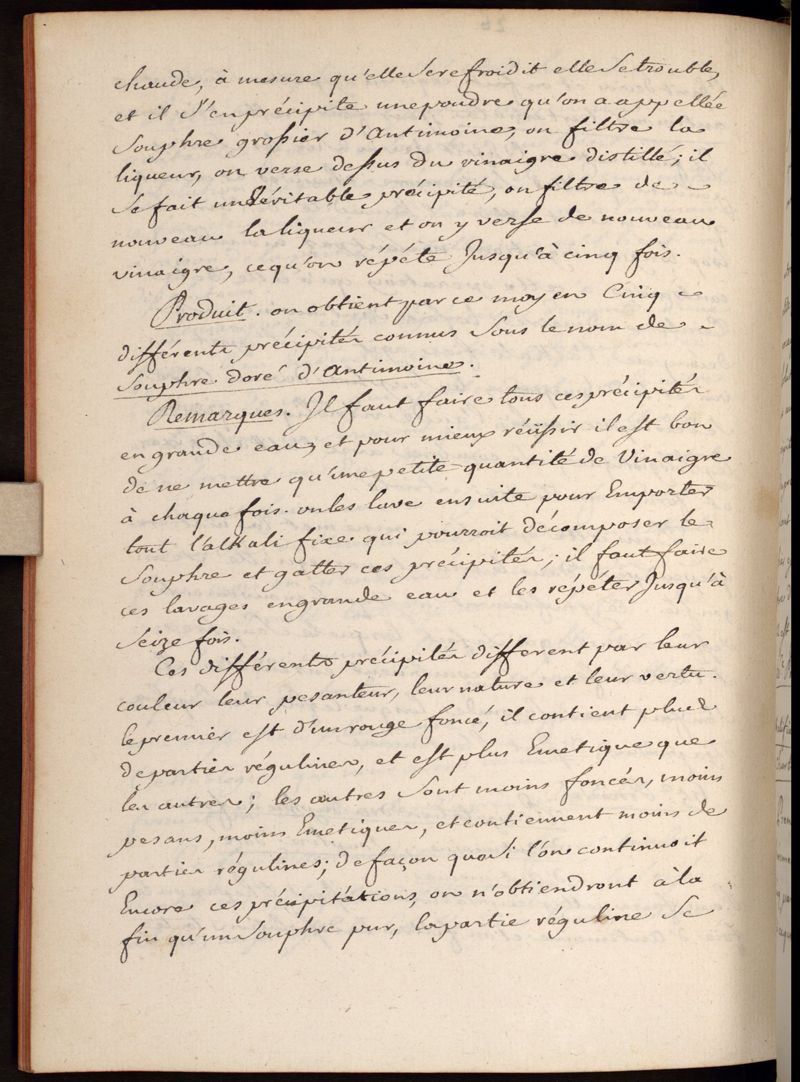 chaude, à mesure qu'elle se refroidit elle se trouble,
et il s'en précipite une poudre qu'on a appellée
Souphre grossier d'Antimoine, on filtre la
liqueur, on verse dessus du vinaigre distillé; il
se fait un véritable précipité, on filtre de
nouveau la liqueur et on y verse de nouveau
vinaigre, ce qu'on répéte Jusqu'à cinq fois.
Produit. on obtient par ce moyen Cinq
différents précipités connus sous le nom de
Souphre doré d'Antimoine.
Remarques. Il faut faire tous ces précipités
en grande eau, et pour mieux réüssir il est bon
de ne mettre qu'une petite quantité de Vinaigre
à chaque fois. on les lave ensuite pour Emporter
tout l'alkali fixe qui pourroit décomposer le
Souphre et gatter ces précipités; il faut faire
ces lavages en grande eau et les répéter Jusqu'à
Seize fois.
Ces différents précipités different par leur
couleur leur pesanteur, leur nature et leur vertu.
le premier est d'un rouge foncé, il contient plus
de parties régulines, et est plus Emetique que
les autres; les autres sont moins foncés, moins
pesans, moins Emetiques, et contiennent moins de
parties régulines; de façon que si l'on continuoit
Encore ces précipitations, on n'obtiendront à la
fin qu'un Souphre pur, la partie réguline se